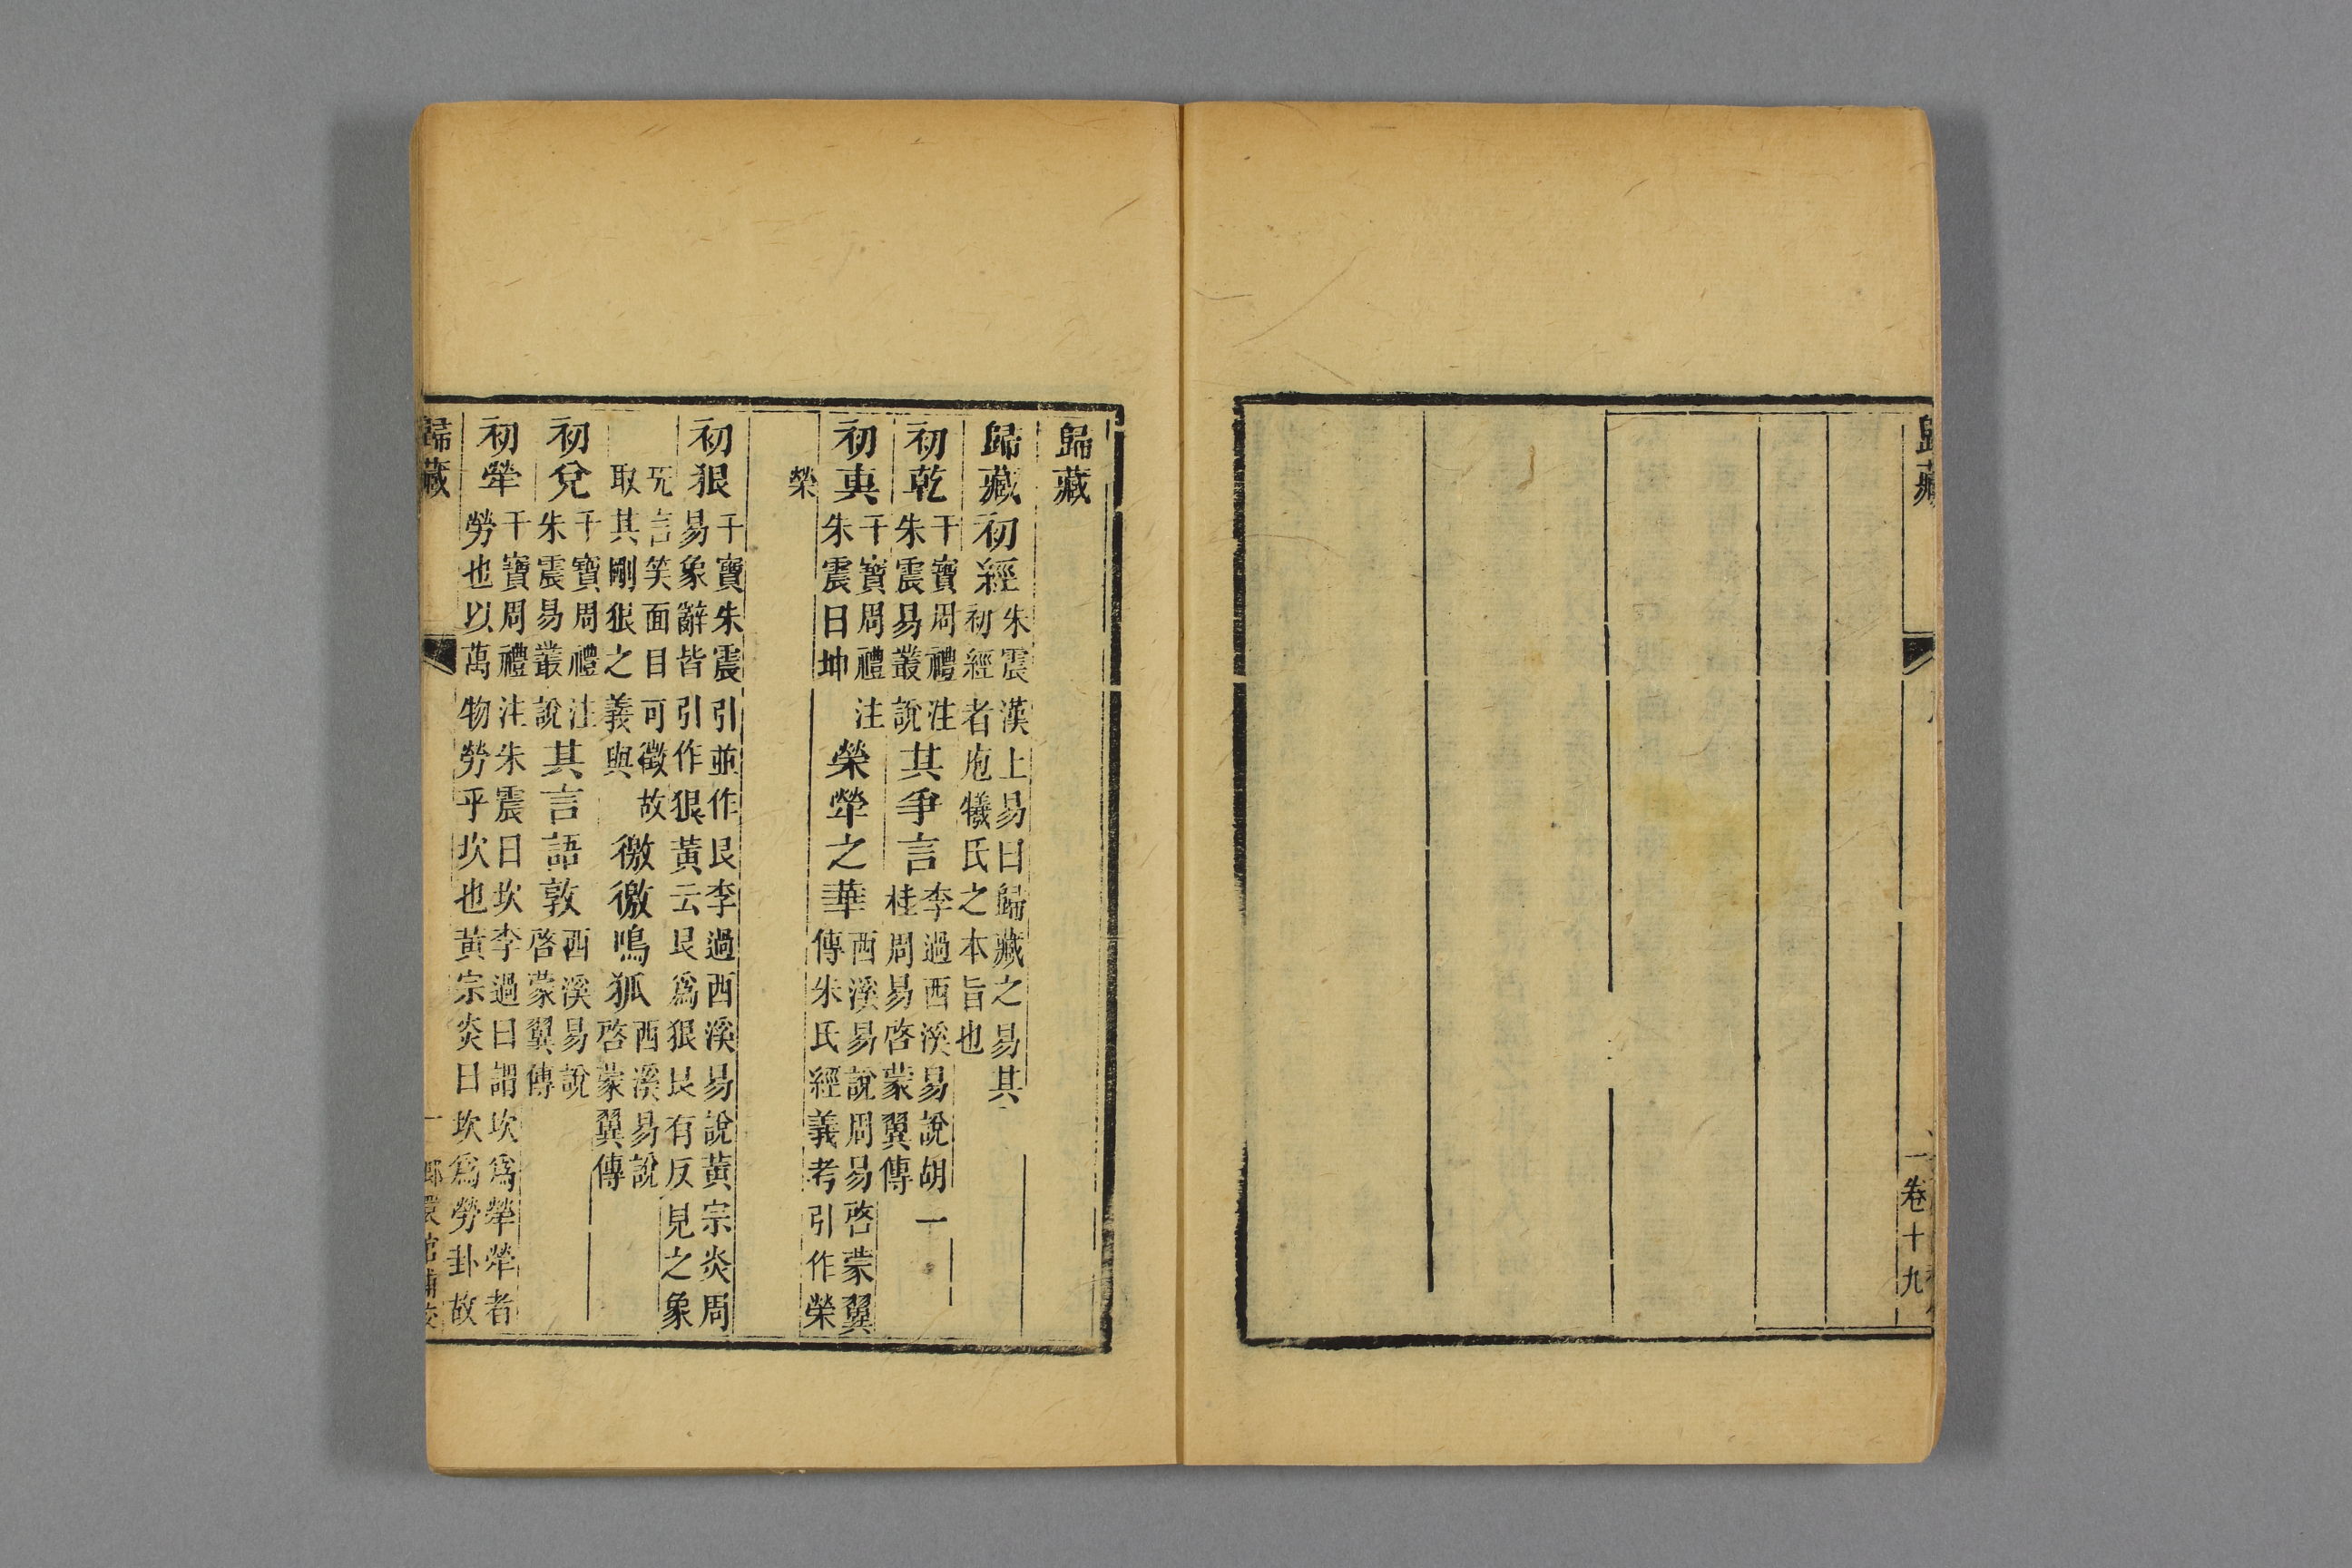 歸藏
一卷十九
歸藏
歸藏初經
朱震漢上易曰歸藏之易其
初經者庖犧氏之本旨也
初乾
干寶周禮注
朱震易叢說
其爭言
李過西溪易說胡一
桂周易啓蒙翼傳
初𡘩
干寶周禮注
朱震曰坤
榮犖之華
西溪易說周易啓蒙翼
傳朱氏經義考引作榮
榮
初狠
干寶朱震引並作艮李過西溪易說黃宗炎周
易象辭皆引作狠黃云艮爲狠艮有反見之象
旡言笑面目可徵故
取其剛狠之義與
徼徼鳴狐
西溪易說
啓蒙翼傳
初兌
干寶周禮注
朱震易叢說
其言語敦
西溪易說
啓蒙翼傳
初犖
干寶周禮注朱震曰坎李過曰謂坎爲犖犖者
勞也以萬物勞乎坎也黃宗炎曰坎爲勞卦故
歸藏
一